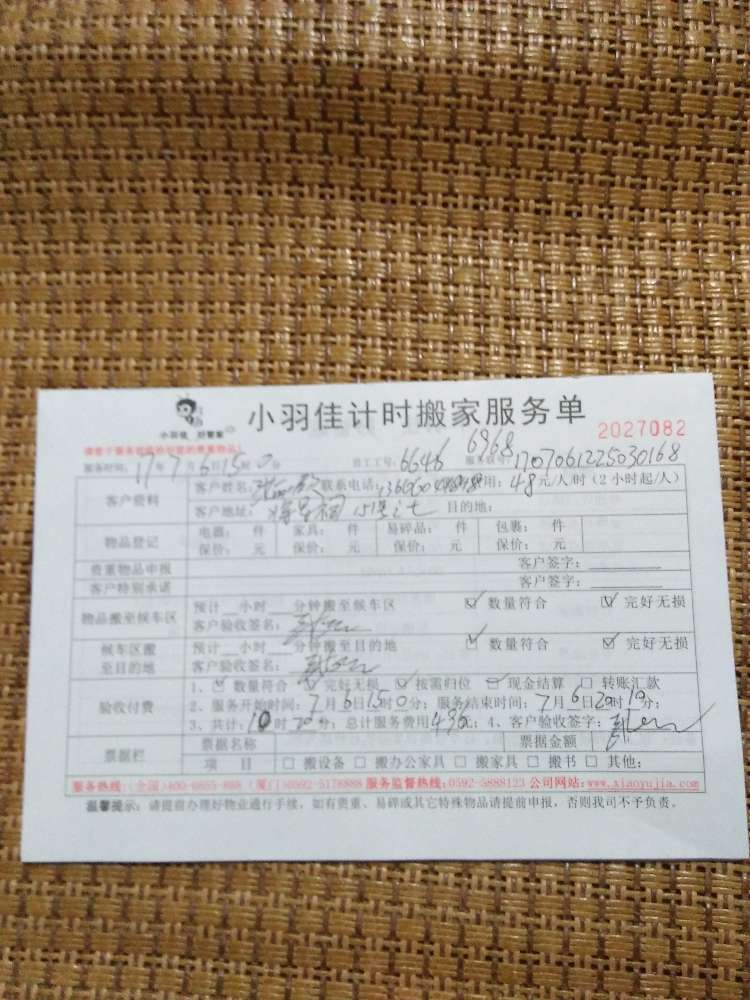 小羽佳 好管家
小羽佳计时搬家服务单
2027082
请您于服务前收纳好您的贵重物品!
服务时间: 17年7月6日15时0分 员工工号: 6646 6968 服务单号: 1707061225030168
客户资料
客户姓名: 联系电话: 费用: 48元/人/时(2小时起/人)
客户地址: 目的地:
物品登记
电器: 件 家具: 件 易碎品: 件 包裹: 件
保价: 元 保价: 元 保价: 元 保价: 元
贵重物品申报 客户签字:
客户特别承诺 客户签字:
物品搬至候车区
预计__小时__分钟搬至候车区 ☑ 数量符合 ☑ 完好无损
客户验收签名:
候车区搬至目的地
预计__小时__分钟搬至目的地 ☑ 数量符合 ☑ 完好无损
客户验收签名:
验收付费
1、☑ 数量符合 ☑ 完好无损 ☑ 按需归位 ☑ 现金结算 □ 转账汇款
2、服务开始时间: 7月6日15时0分; 服务结束时间: 7月6日20时10分;
3、共计: 10时20分; 总计服务费用496元; 4、客户验收签字:
票据栏
票据名称 票据金额
项 目 □ 搬设备 □ 搬办公家具 □ 搬家具 □ 搬书 □ 其他:
服务热线: (全国)400-6855-888 (厦门)0592-5178888 服务监督热线: 0592-5888123 公司网站: www.xiaoyujia.com
温馨提示: 请提前办理好物业通行手续, 如有贵重、易碎或其它特殊物品请提前申报, 否则我司不予负责。